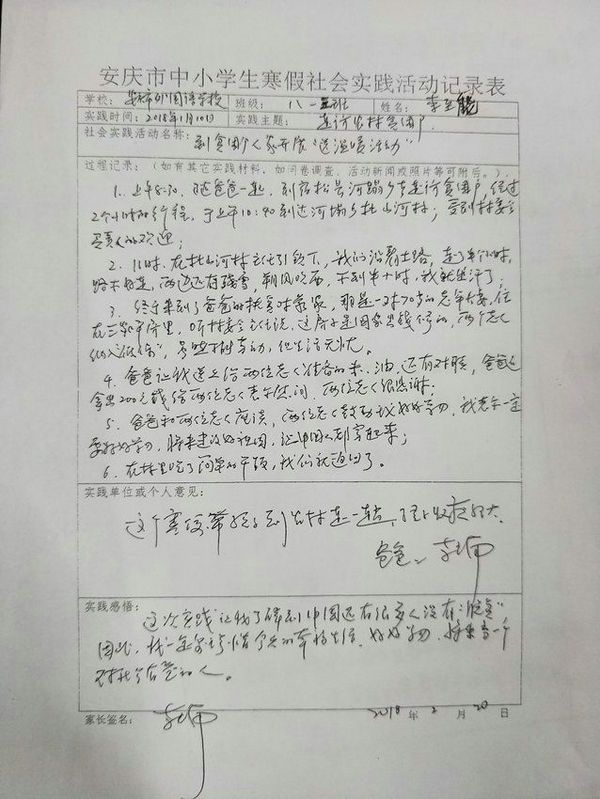 安庆市中小学生寒假社会实践活动记录表
学校: 安庆外国语学校 班级: 八一五班 姓名: 李至
实践时间: 2018年1月10日 实践主题: 走访农村贫困户
社会实践活动名称: 到贫困人家开展“送温暖活动”
过程记录:(如有其它实践材料,如问卷调查、活动新闻或照片等可附后。)
1. 上午8:30, 随爸爸一起, 到宿松县河塌乡走访贫困户, 经过
2个小时的行程, 于上午10:40到达河塌乡杜山河村; 受到村委会
的欢迎;
2. 11时, 在杜山河村主任引领下, 我们沿着土路, 走了半个小时,
路不好走, 两边还有残雪, 朔风吹面, 不到半小时, 我就
3. 终于来到了爸爸的扶贫对象家, 那是一对70多的老年夫妻, 住
在三间平房里, 听村委会主任说, 这房子是国家出钱修的, 两个老人
纳入低保, 虽然不能劳动, 但生活无忧。
4. 爸爸让我送上给两位老人准备的米、油, 还有对联, 爸爸还
拿出200元钱给两位老人老年慰问, 两位老人很感谢;
5. 爸爸和两位老人座谈, 两位老人鼓励我好好学习, 我表示一定
要好好学习, 将来建设好祖国, 让中国人都富起来;
6. 在村里吃了简单的午饭, 我们就返回了。
实践单位或个人意见:
这个寒假带孩子到农村走一趟, 收获很大
爸爸:
实践感悟:
这次实践让我了解到中国还有很多人没有“脱贫”
因此, 我一定要珍惜今天的幸福生活, 好好学习, 将来当一个
对社会有益的人。
家长签名: 2018 年 2 月 20 日